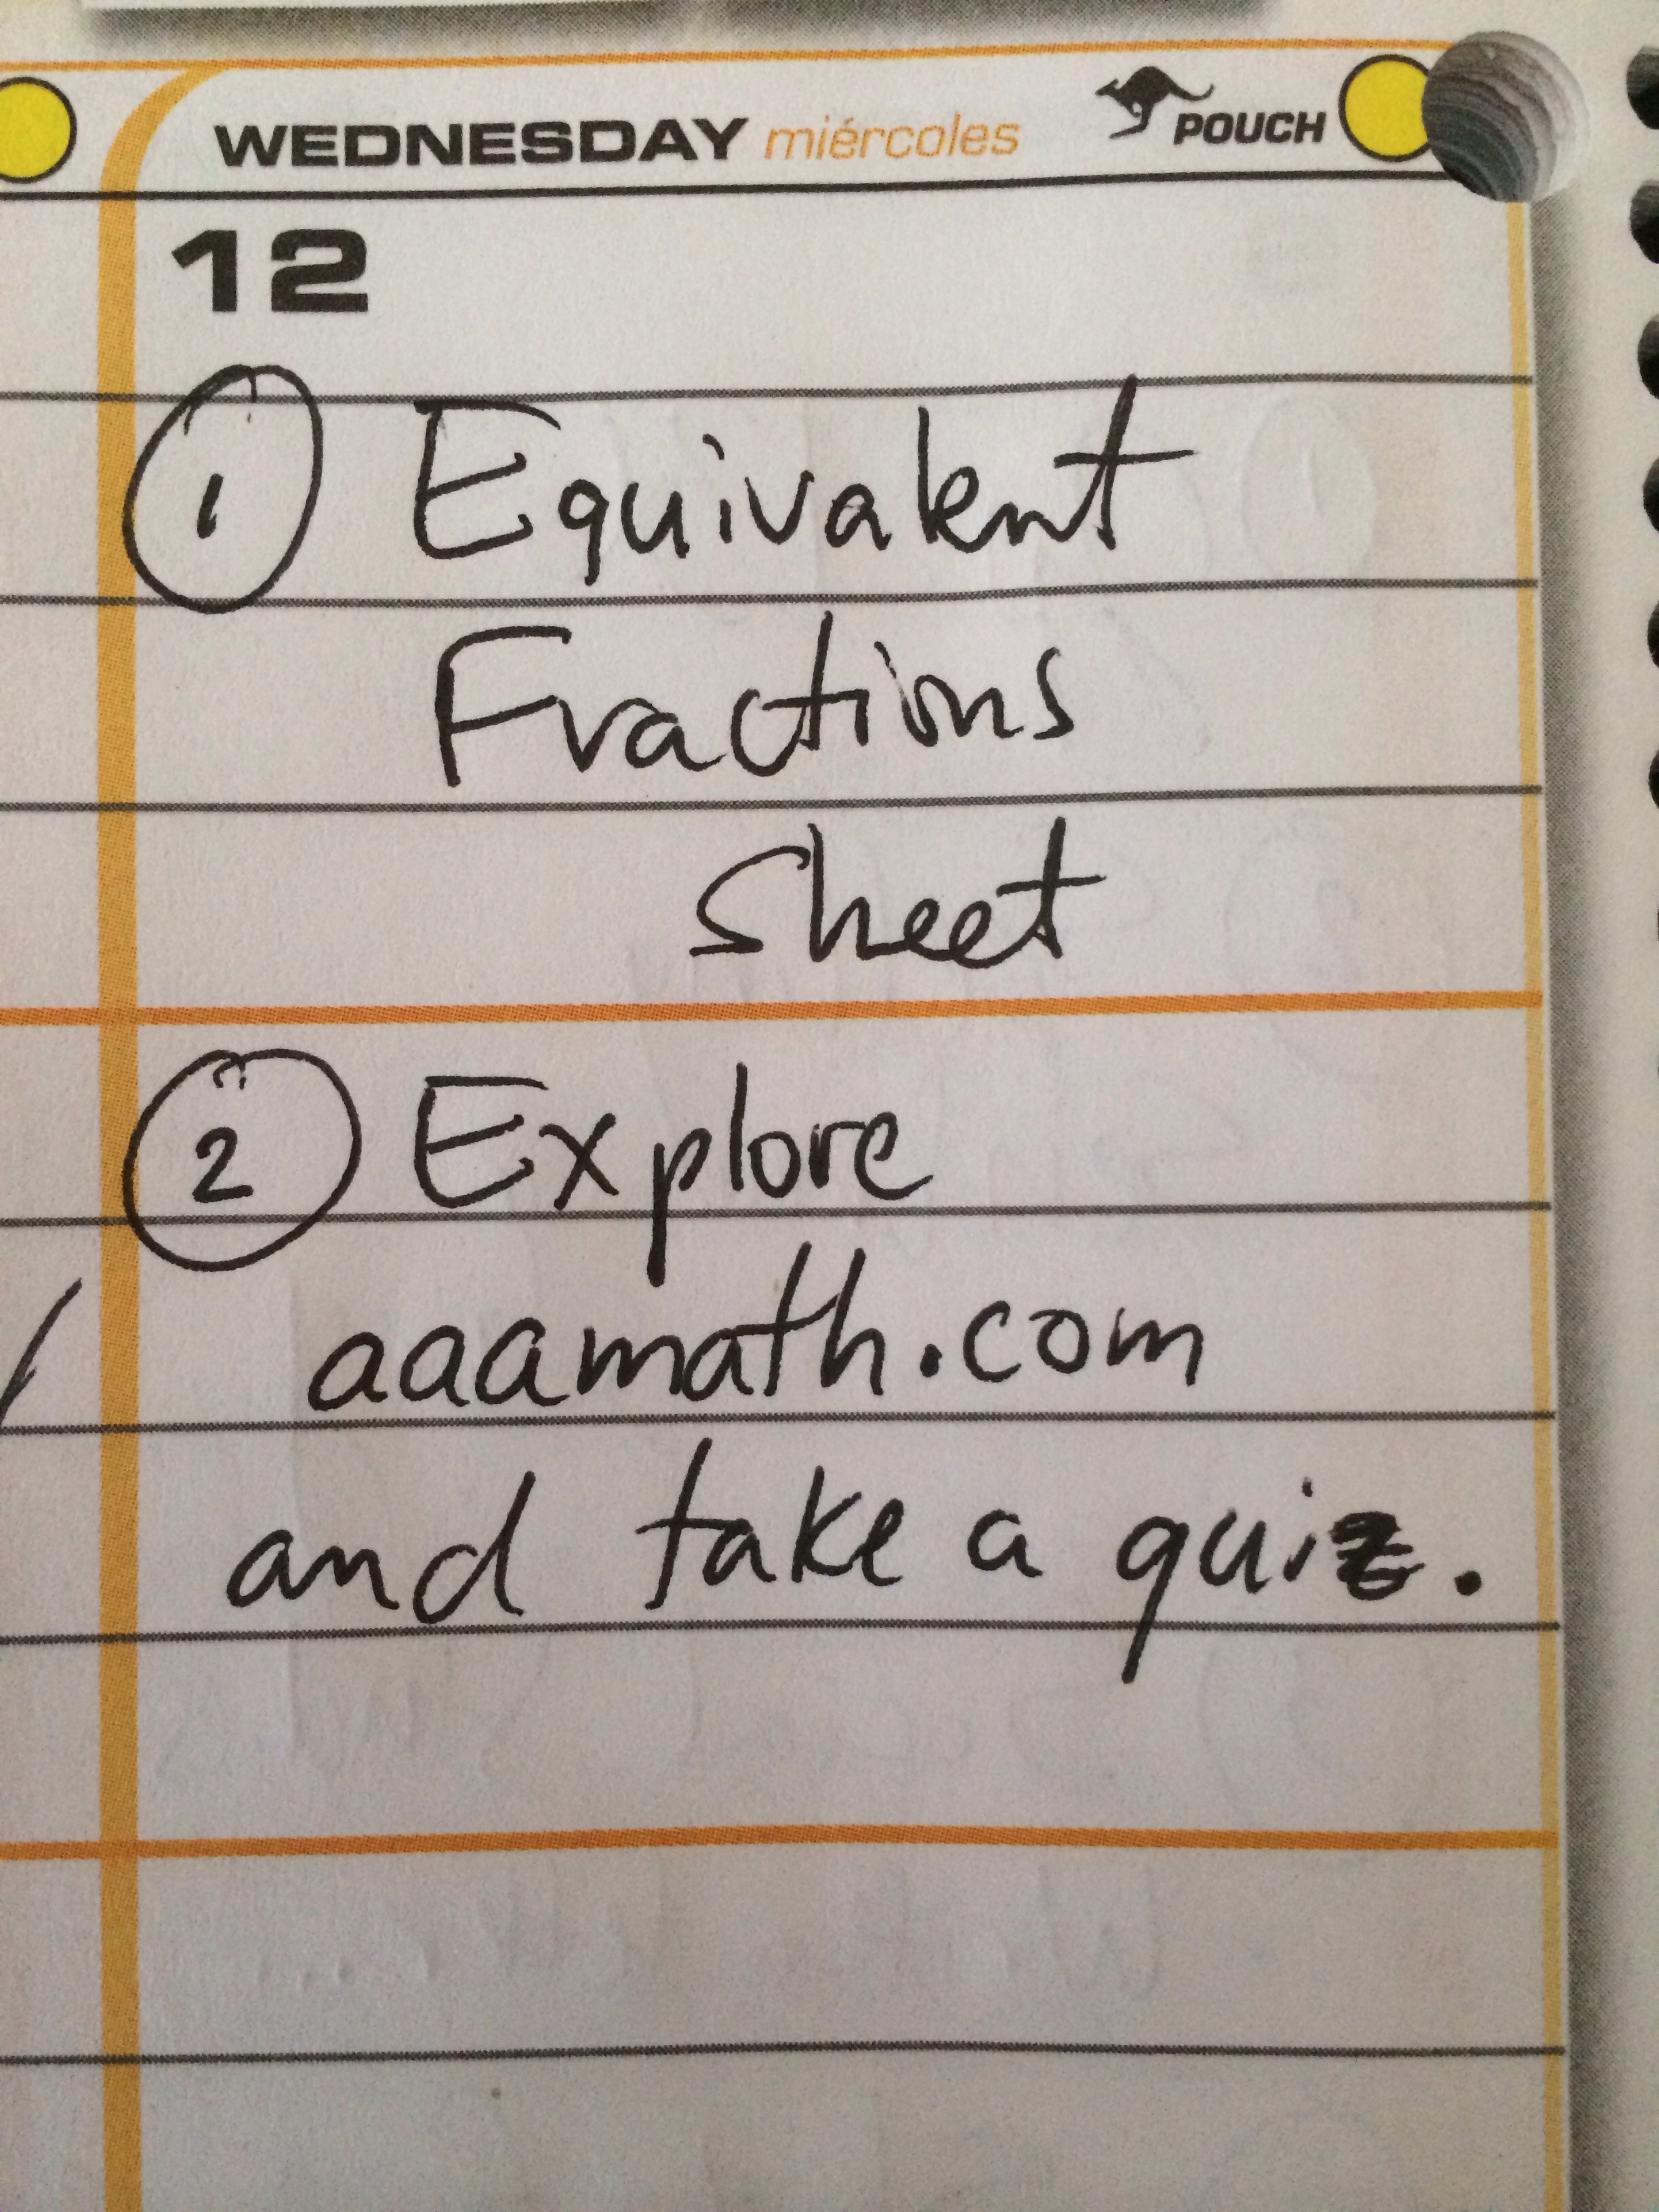 WEDNESDAY miércoles POUCH
12
1 Equivalent
Fractions
Sheet
2 Explore
aaamath.com
and take a quiz.